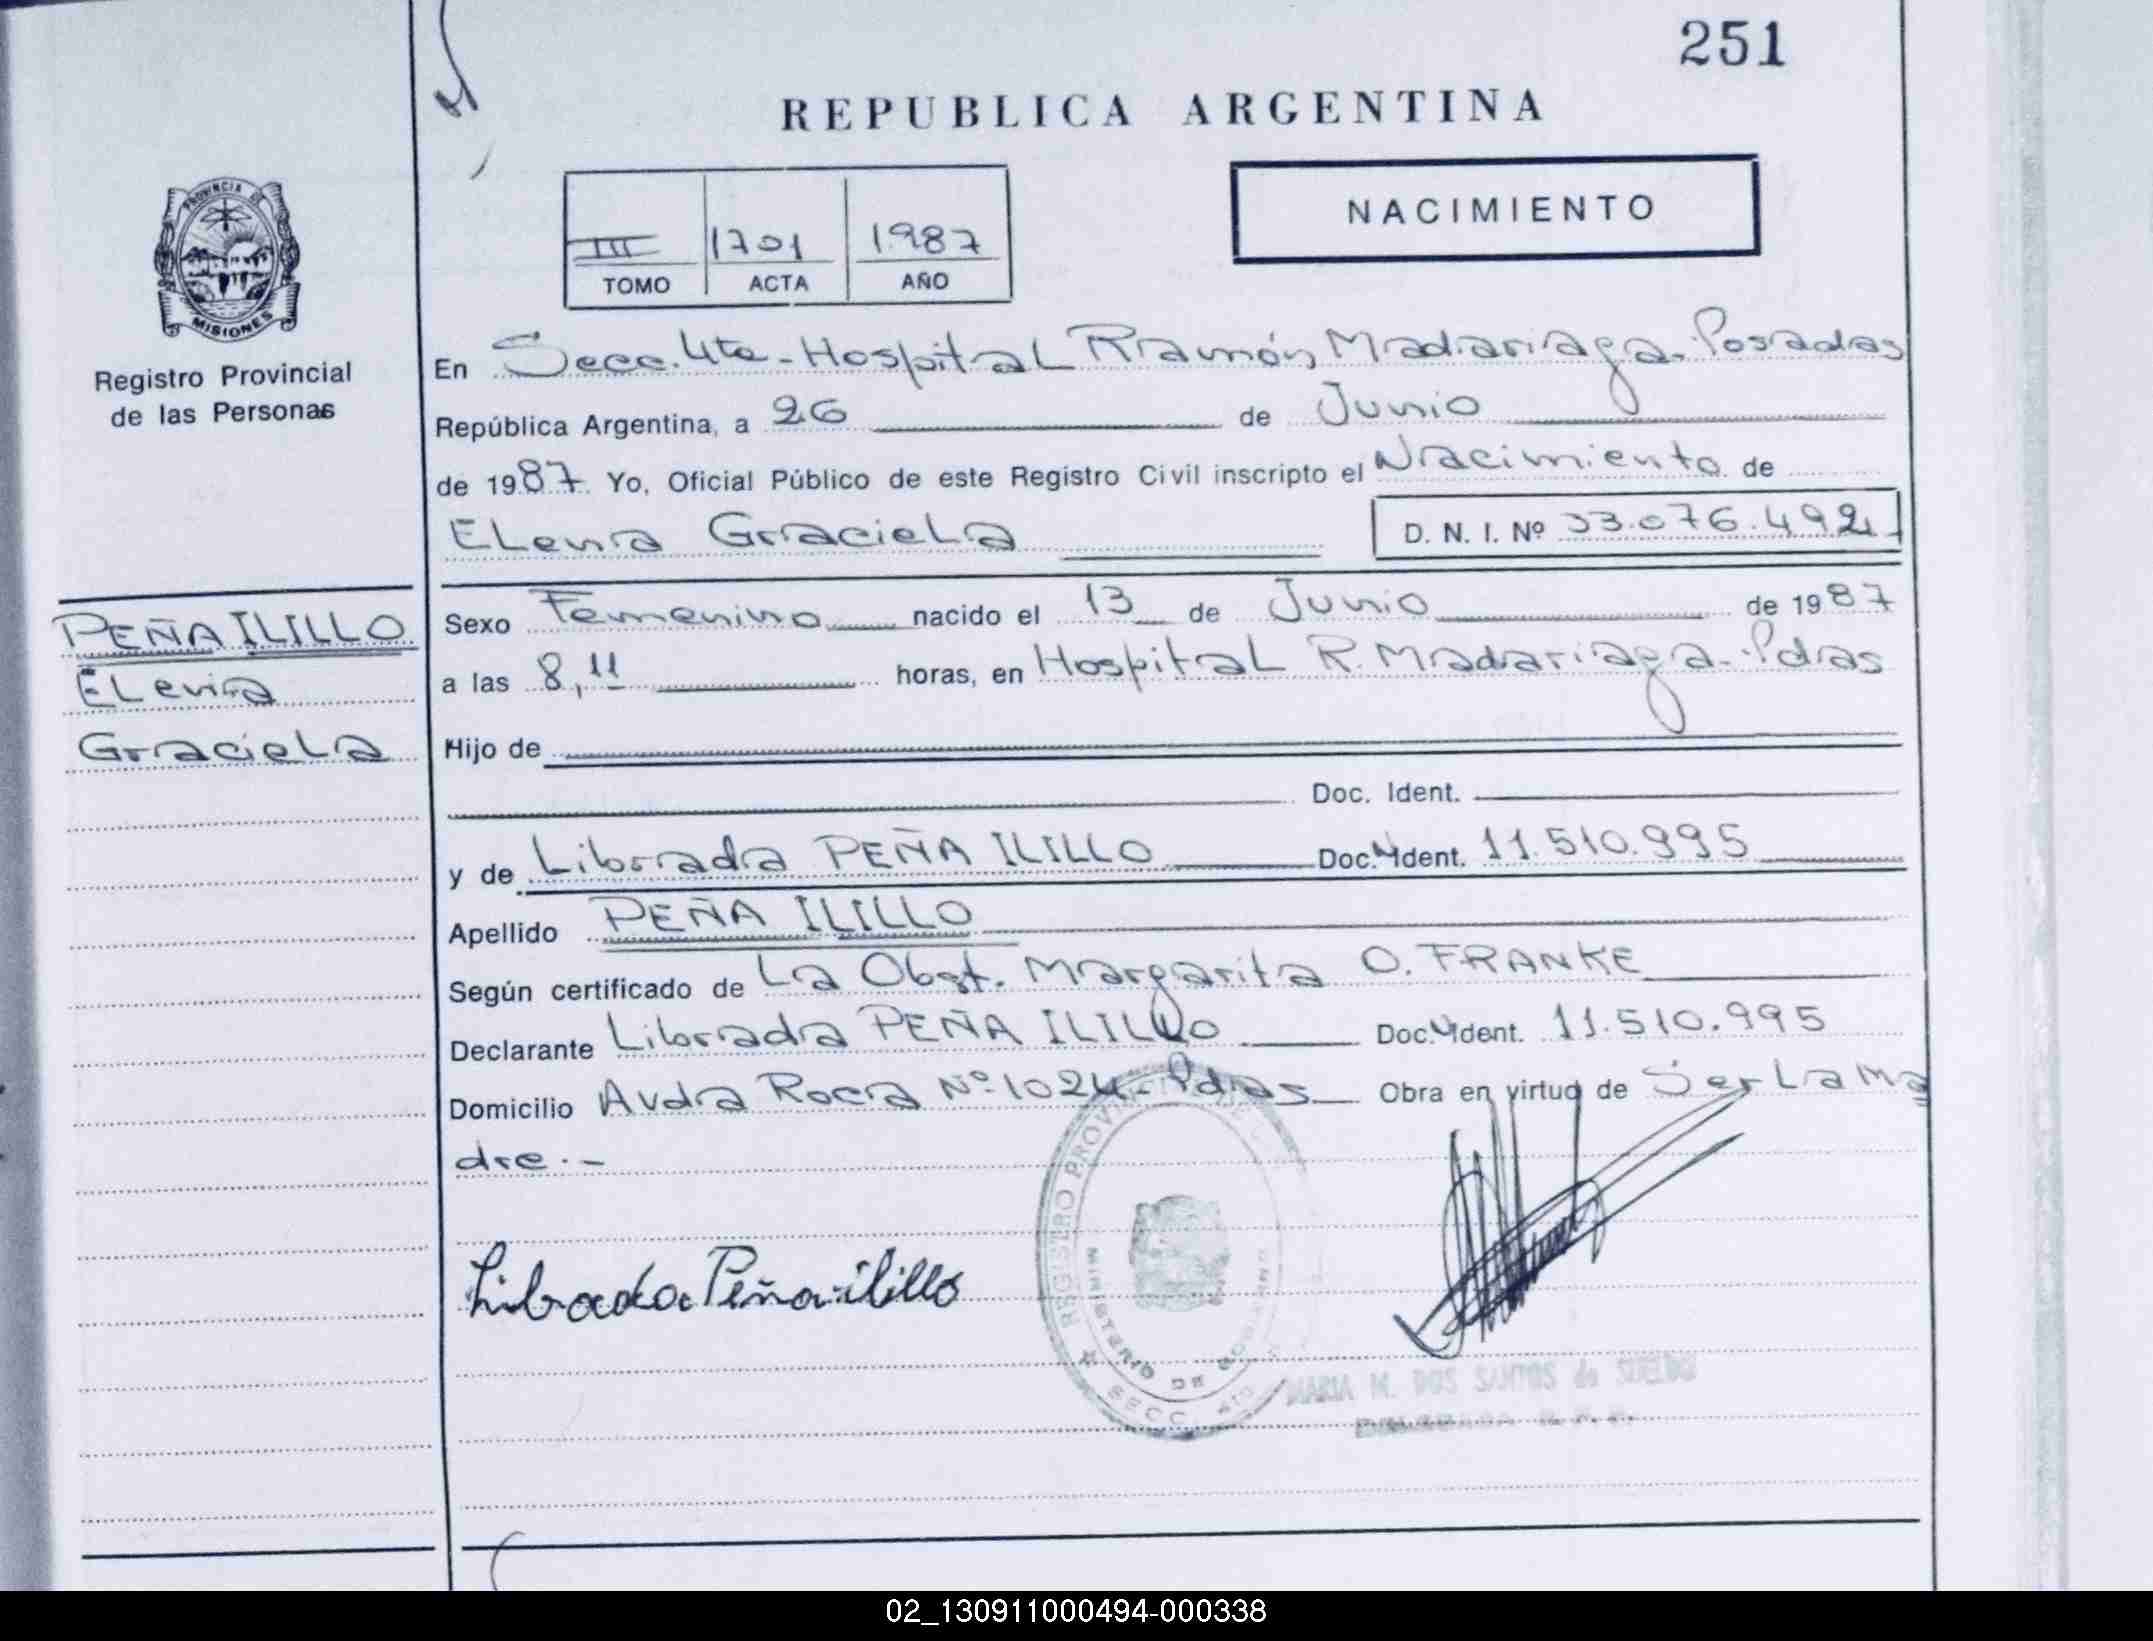 251
REPUBLICA ARGENTINA
NACIMIENTO
III 1701 1987
TOMO ACTA AÑO
PROVINCIA DE
MISIONES
Registro Provincial
de las Personas
En Secc. 4ta - Hospital Ramón Madariaga. Posadas
República Argentina, a 26 de Junio
de 1987 Yo, Oficial Público de este Registro Civil inscripto el Nacimiento de
Elena Graciela D. N. I. Nº 33.076.492
PEÑA ILILLO
Elena
Graciela
Sexo Femenino nacido el 13 de Junio de 1987
a las 8,11 horas, en Hospital R. Madariaga - Pdas
Hijo de
Doc. Ident.
y de Librada PEÑA ILILLO Doc. Ident. 11.510.995
Apellido PEÑA ILILLO
Según certificado de La Obst. Margarita O. FRANKE
Declarante Librada PEÑA ILILLO Doc. Ident. 11.510.995
Domicilio Avda Roca Nº 1024 - Pdas Obra en virtud de Ser La Ma
dre.-
Librada Peña ilillo
REGISTRO PROVINCIAL DE
MINISTERIO DE GOBIERNO
SECC. 4TA
MARIA M. DOS SANTOS de SUELDO
02_130911000494-000338